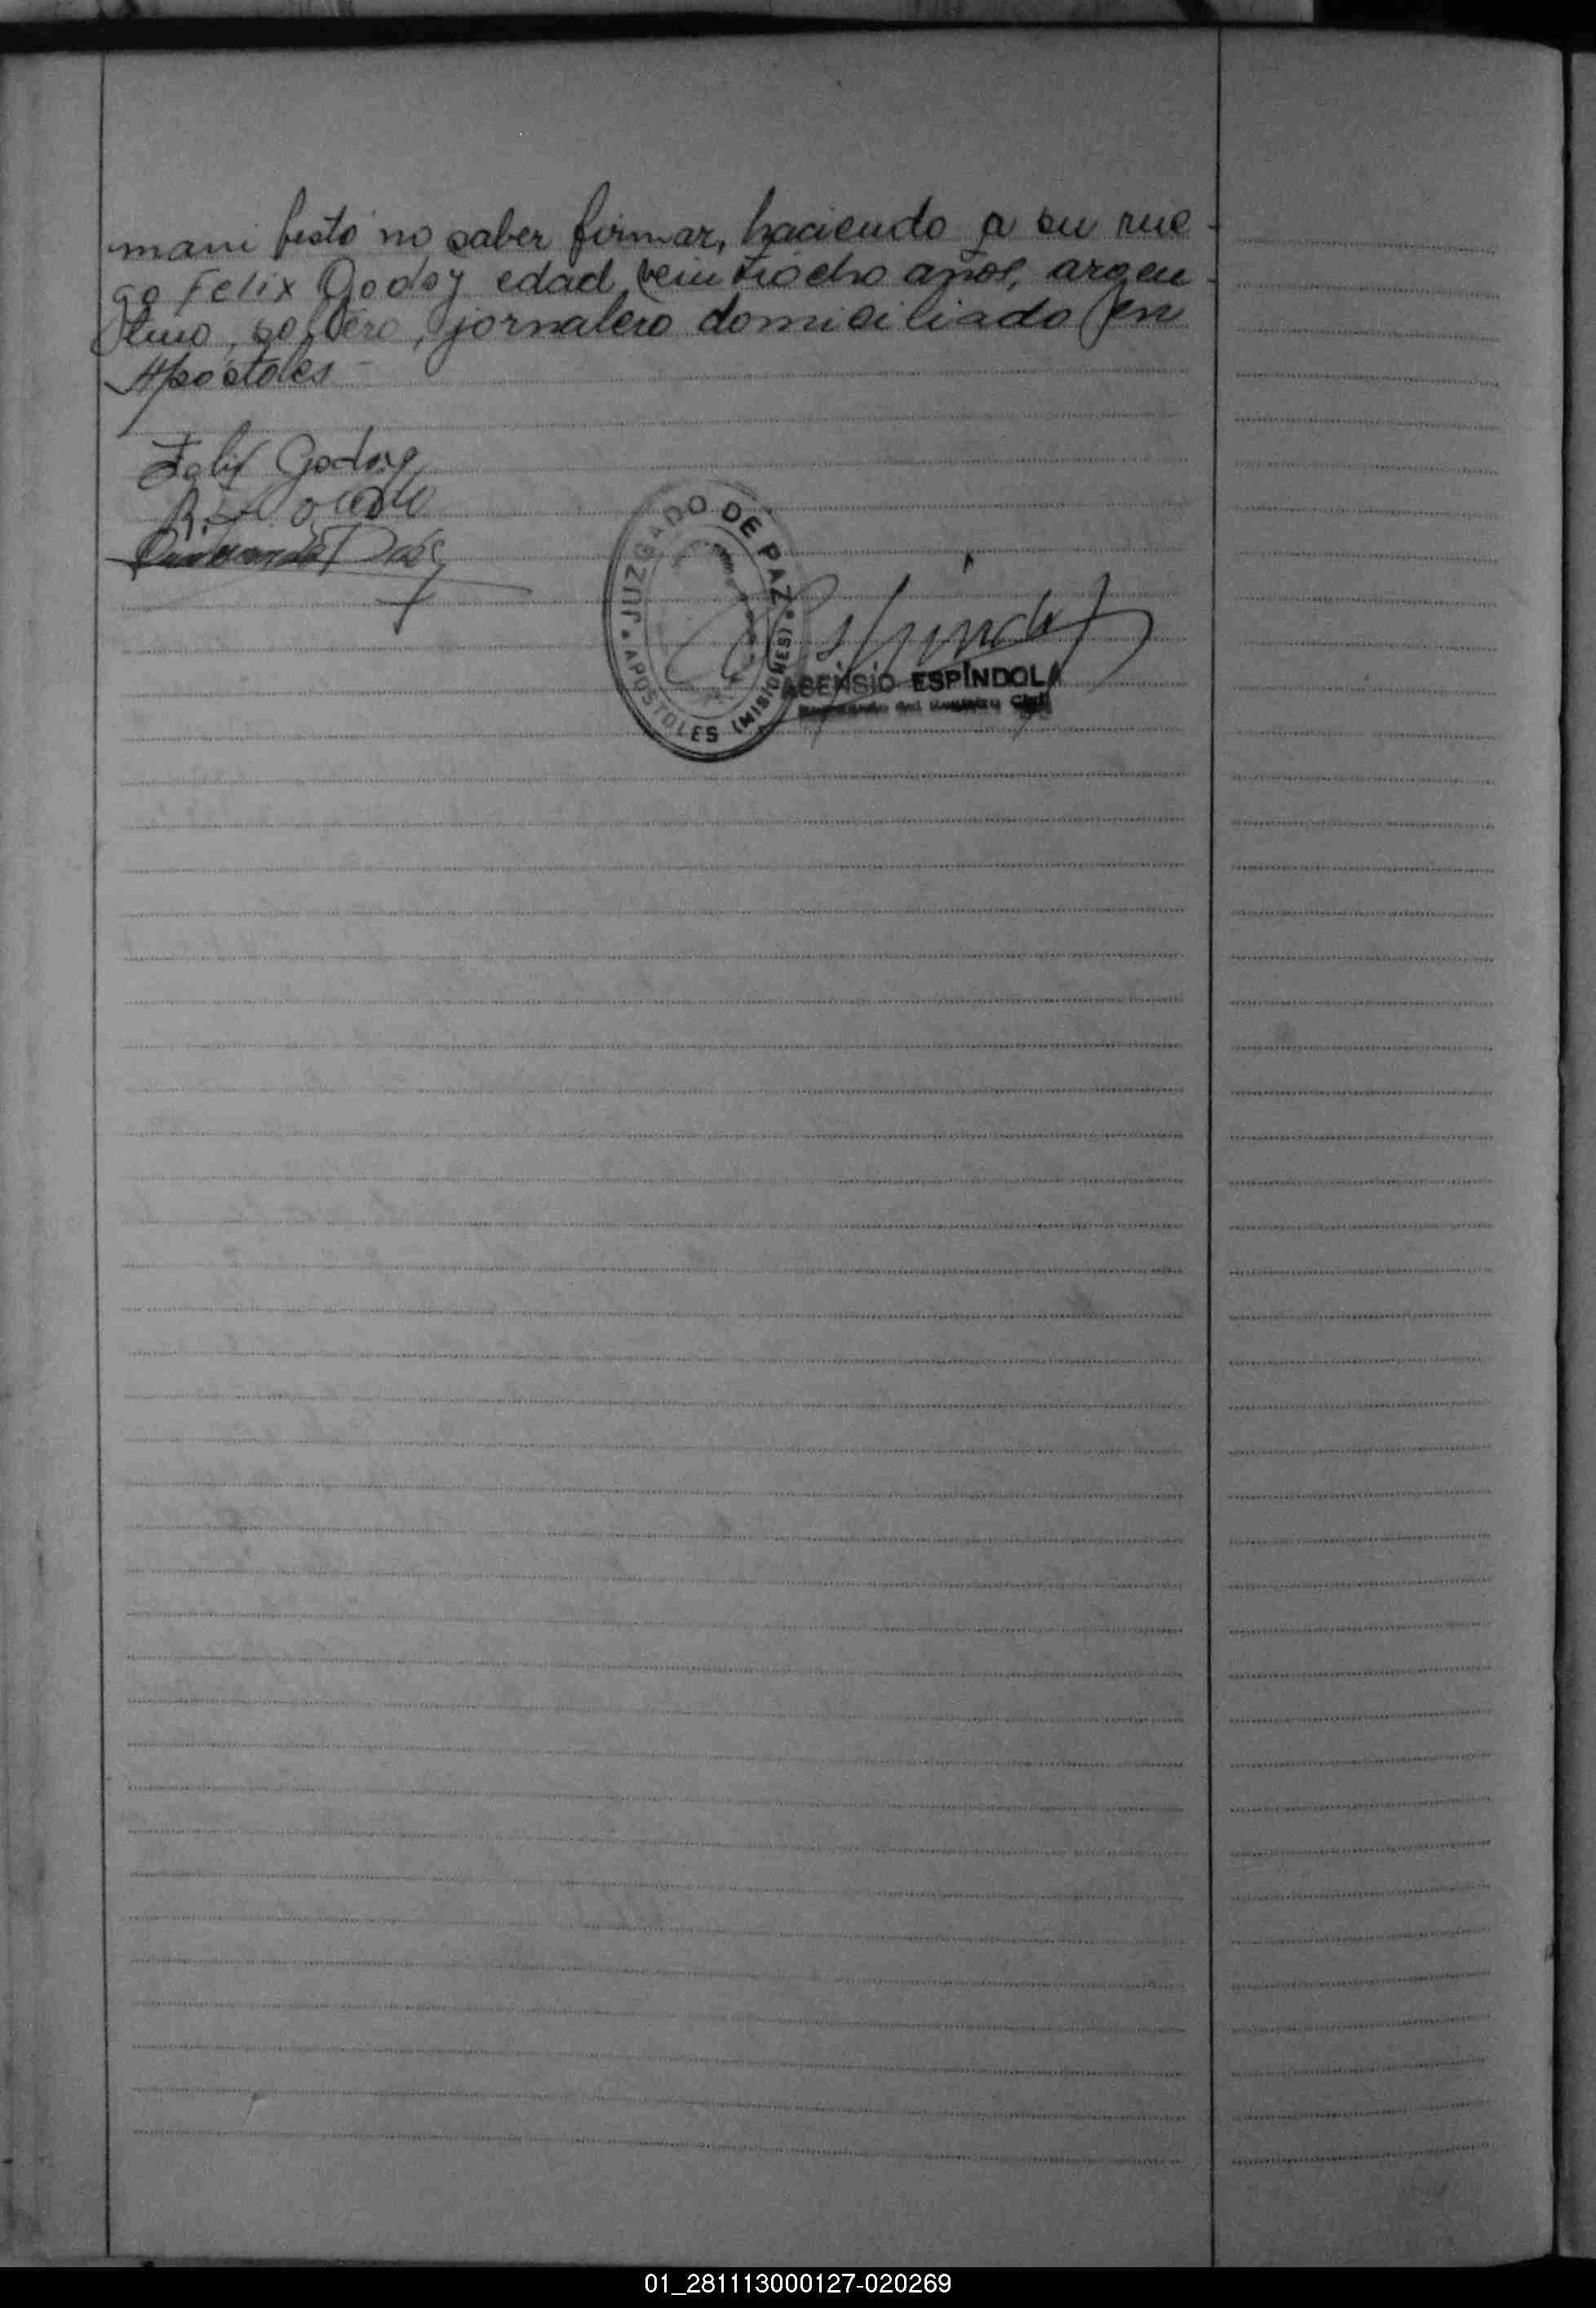 manifesto no saber firmar, haciendo a su rue-
go Felix Godoy edad veintiocho años, argen-
tino, soltero, jornalero domiciliado en
Apóstoles -
Felix Godoy
JUZGADO DE PAZ
APOSTOLES (MISIONES)
Espindola
ASENSIO ESPÍNDOLA
Encargado del Registro Civil
01_281113000127-020269